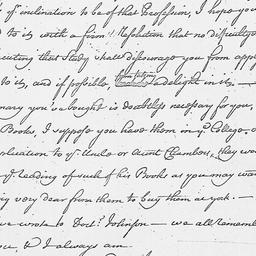 of yr. inclination to be of that Profession, I hope you
to it with a firm Resolution that no difficulty
cuting that Study shall discourage you from appl
to it, and if possible, take a delight in it —
nary you've bought is doubtless necessary for you,
Books, I suppose you have them in ye. College, o
pplication to yr. Uncle or Aunt Chambers, they wo
ye. reading of such of his Books as you may wan
ing very dear from them to buy them as yet. —
ve wrote to Doctr. Johnson — we all remem
ou, & I always am